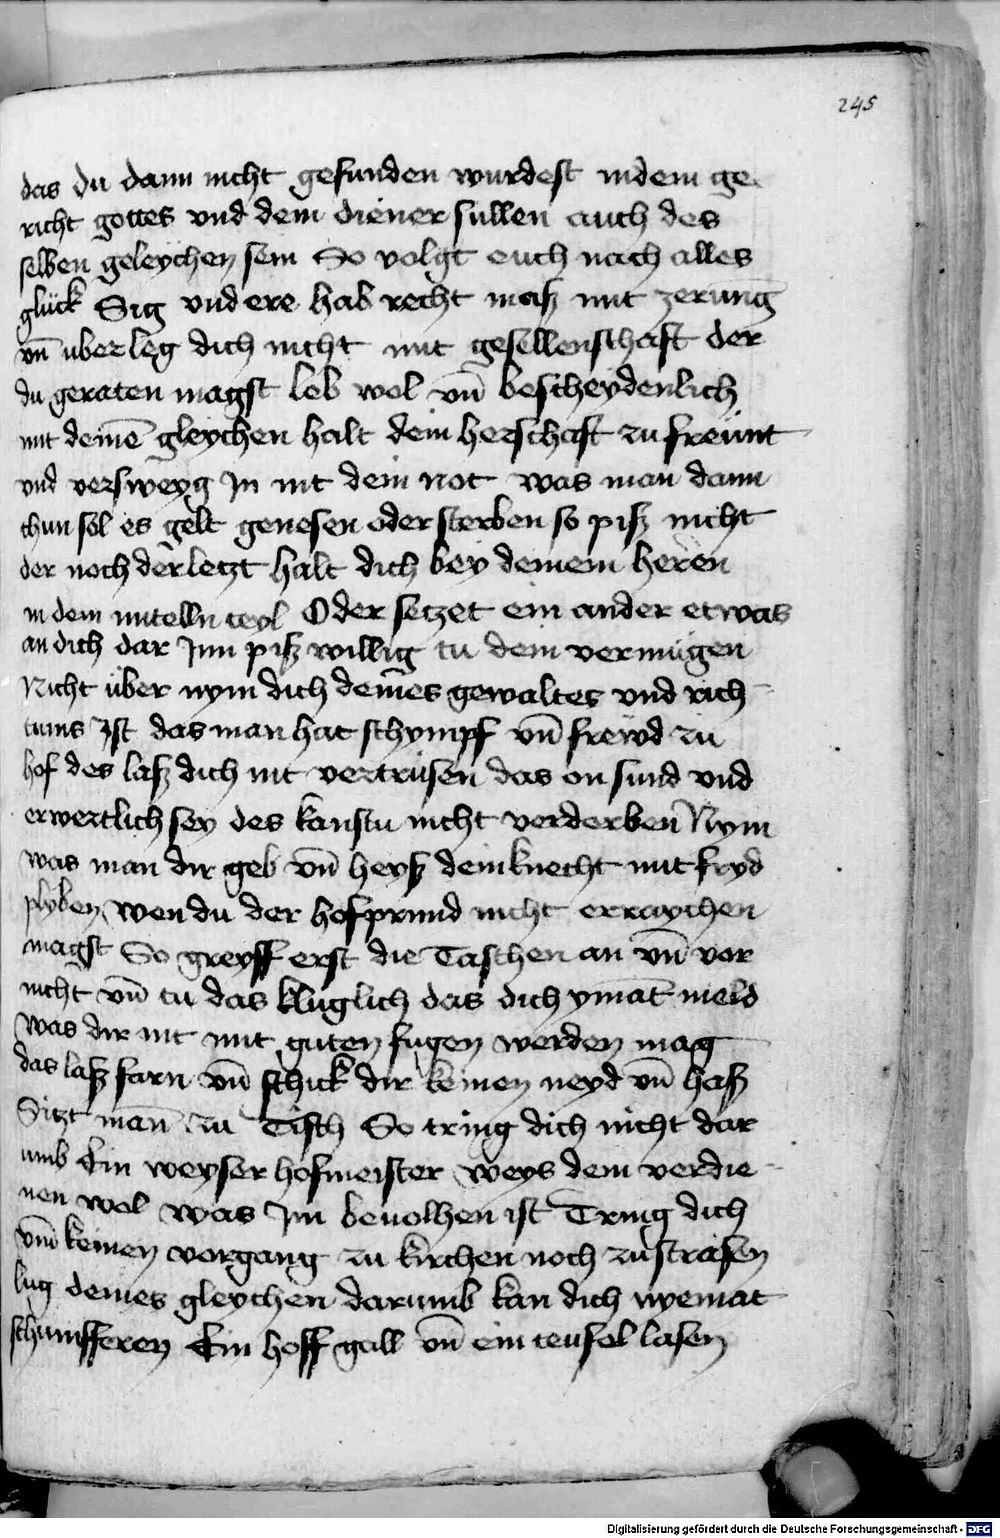 245
das du dann nicht gefunden wurdest in dem ge
richt gottes vnd dem diener sullen auch des
selben geleychen sein So volgt euch nach alles
glück Sig vnd ere hab recht masz mit zerung
vn̄ uberleg dich nicht mit gesellenschaft der
du geraten magst leb wol vn̄ bescheydenlich
mit deinē gleychen halt dein herschaft zu freünt
vnd versweyg In nit dein not was man dann
thun sol es gelt genesen oder sterben so pisz nicht
der noch der letzt halt dich bey deinem heren
in dem mitelln teyl Oder setzet ein ander etwas
an dich dar Inn pisz willig tu dein vermügen
Nicht über nym dich deines gewaltes vnd rich
tums Ist das man hat schympf vn̄ frewd zu
hof des lasz dich nit vertrisen das on sund vnd
erwertlich sey des kanstu nicht verderben Nym
was man dir geb vn̄ heysz dein knecht mit fryd
plyben wen du der hofprund nicht erraychen
magst So greyff erst die Taschen an vn̄ vor
nicht vn̄ tu das kluglich das dich ymāt meld
was dir nit mit guten fugen werden mag
das lasz farn vn̄ schick dir keinen neyd vn̄ hasz
Sitzt man zu Tisch So tring dich nicht dar
umb Ein weyser hofmeister weys dem verdie
nen wol was Im beuolhen ist Tring dich
vmb keinen vorgang zu kirchen noch zu strasen
lug deines gleychen darumb kan dich nyemat
schumfferen Ein hoff gall vn̄ ein teufel lasen
Digitalisierung gefördert durch die Deutsche Forschungsgemeinschaft - DFG